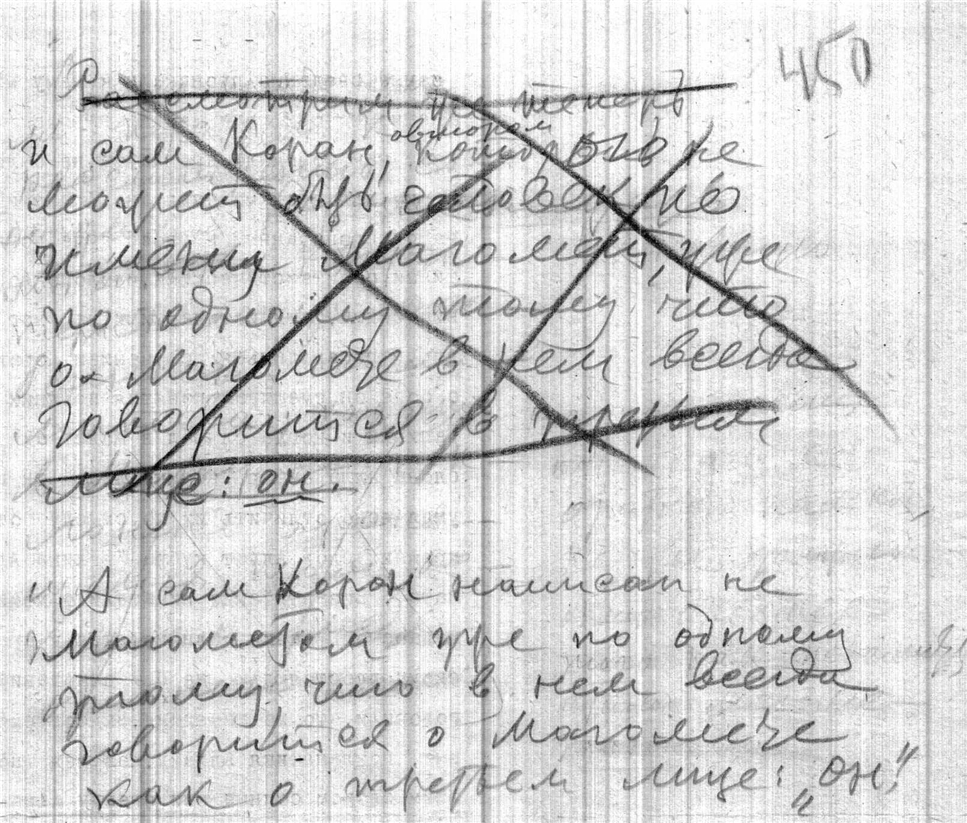 450
Рассмотрим же теперь
и сам Коран,
автором которого не
может быть человек по
имени Магомет, уже
по одному тому что
о Магомете в нем всегда
говорится в третьем
лице: он.
А сам Коран написан не
Магометом уже по одному
тому, что в нем всегда
говорится о Магомете
как о третьем лице: „он“